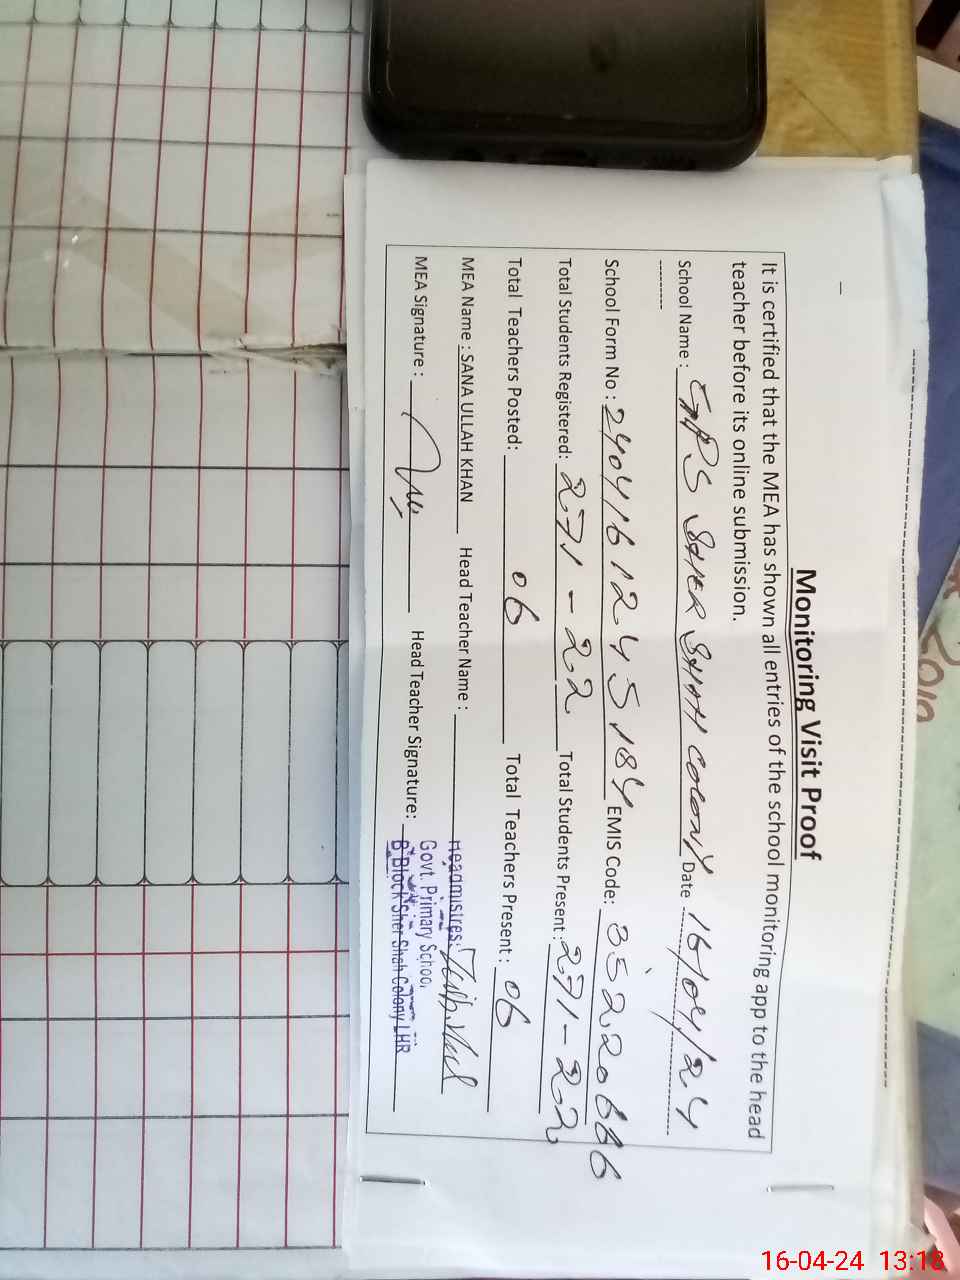 Monitoring Visit Proof
It is certified that the MEA has shown all entries of the school monitoring app to the head
teacher before its online submission.
School Name : GPS SHER SHAH COLONY Date 16/04/24
School Form No : 2404161245184 EMIS Code: 35220666
Total Students Registered: 271 - 22 Total Students Present : 271 - 22
Total Teachers Posted: 06 Total Teachers Present : 06
MEA Name : SANA ULLAH KHAN Head Teacher Name :
MEA Signature : Head Teacher Signature:
Headmistres
Govt. Primary School
B Block Sher Shah Colony LHR
2019
16-04-24 13:18